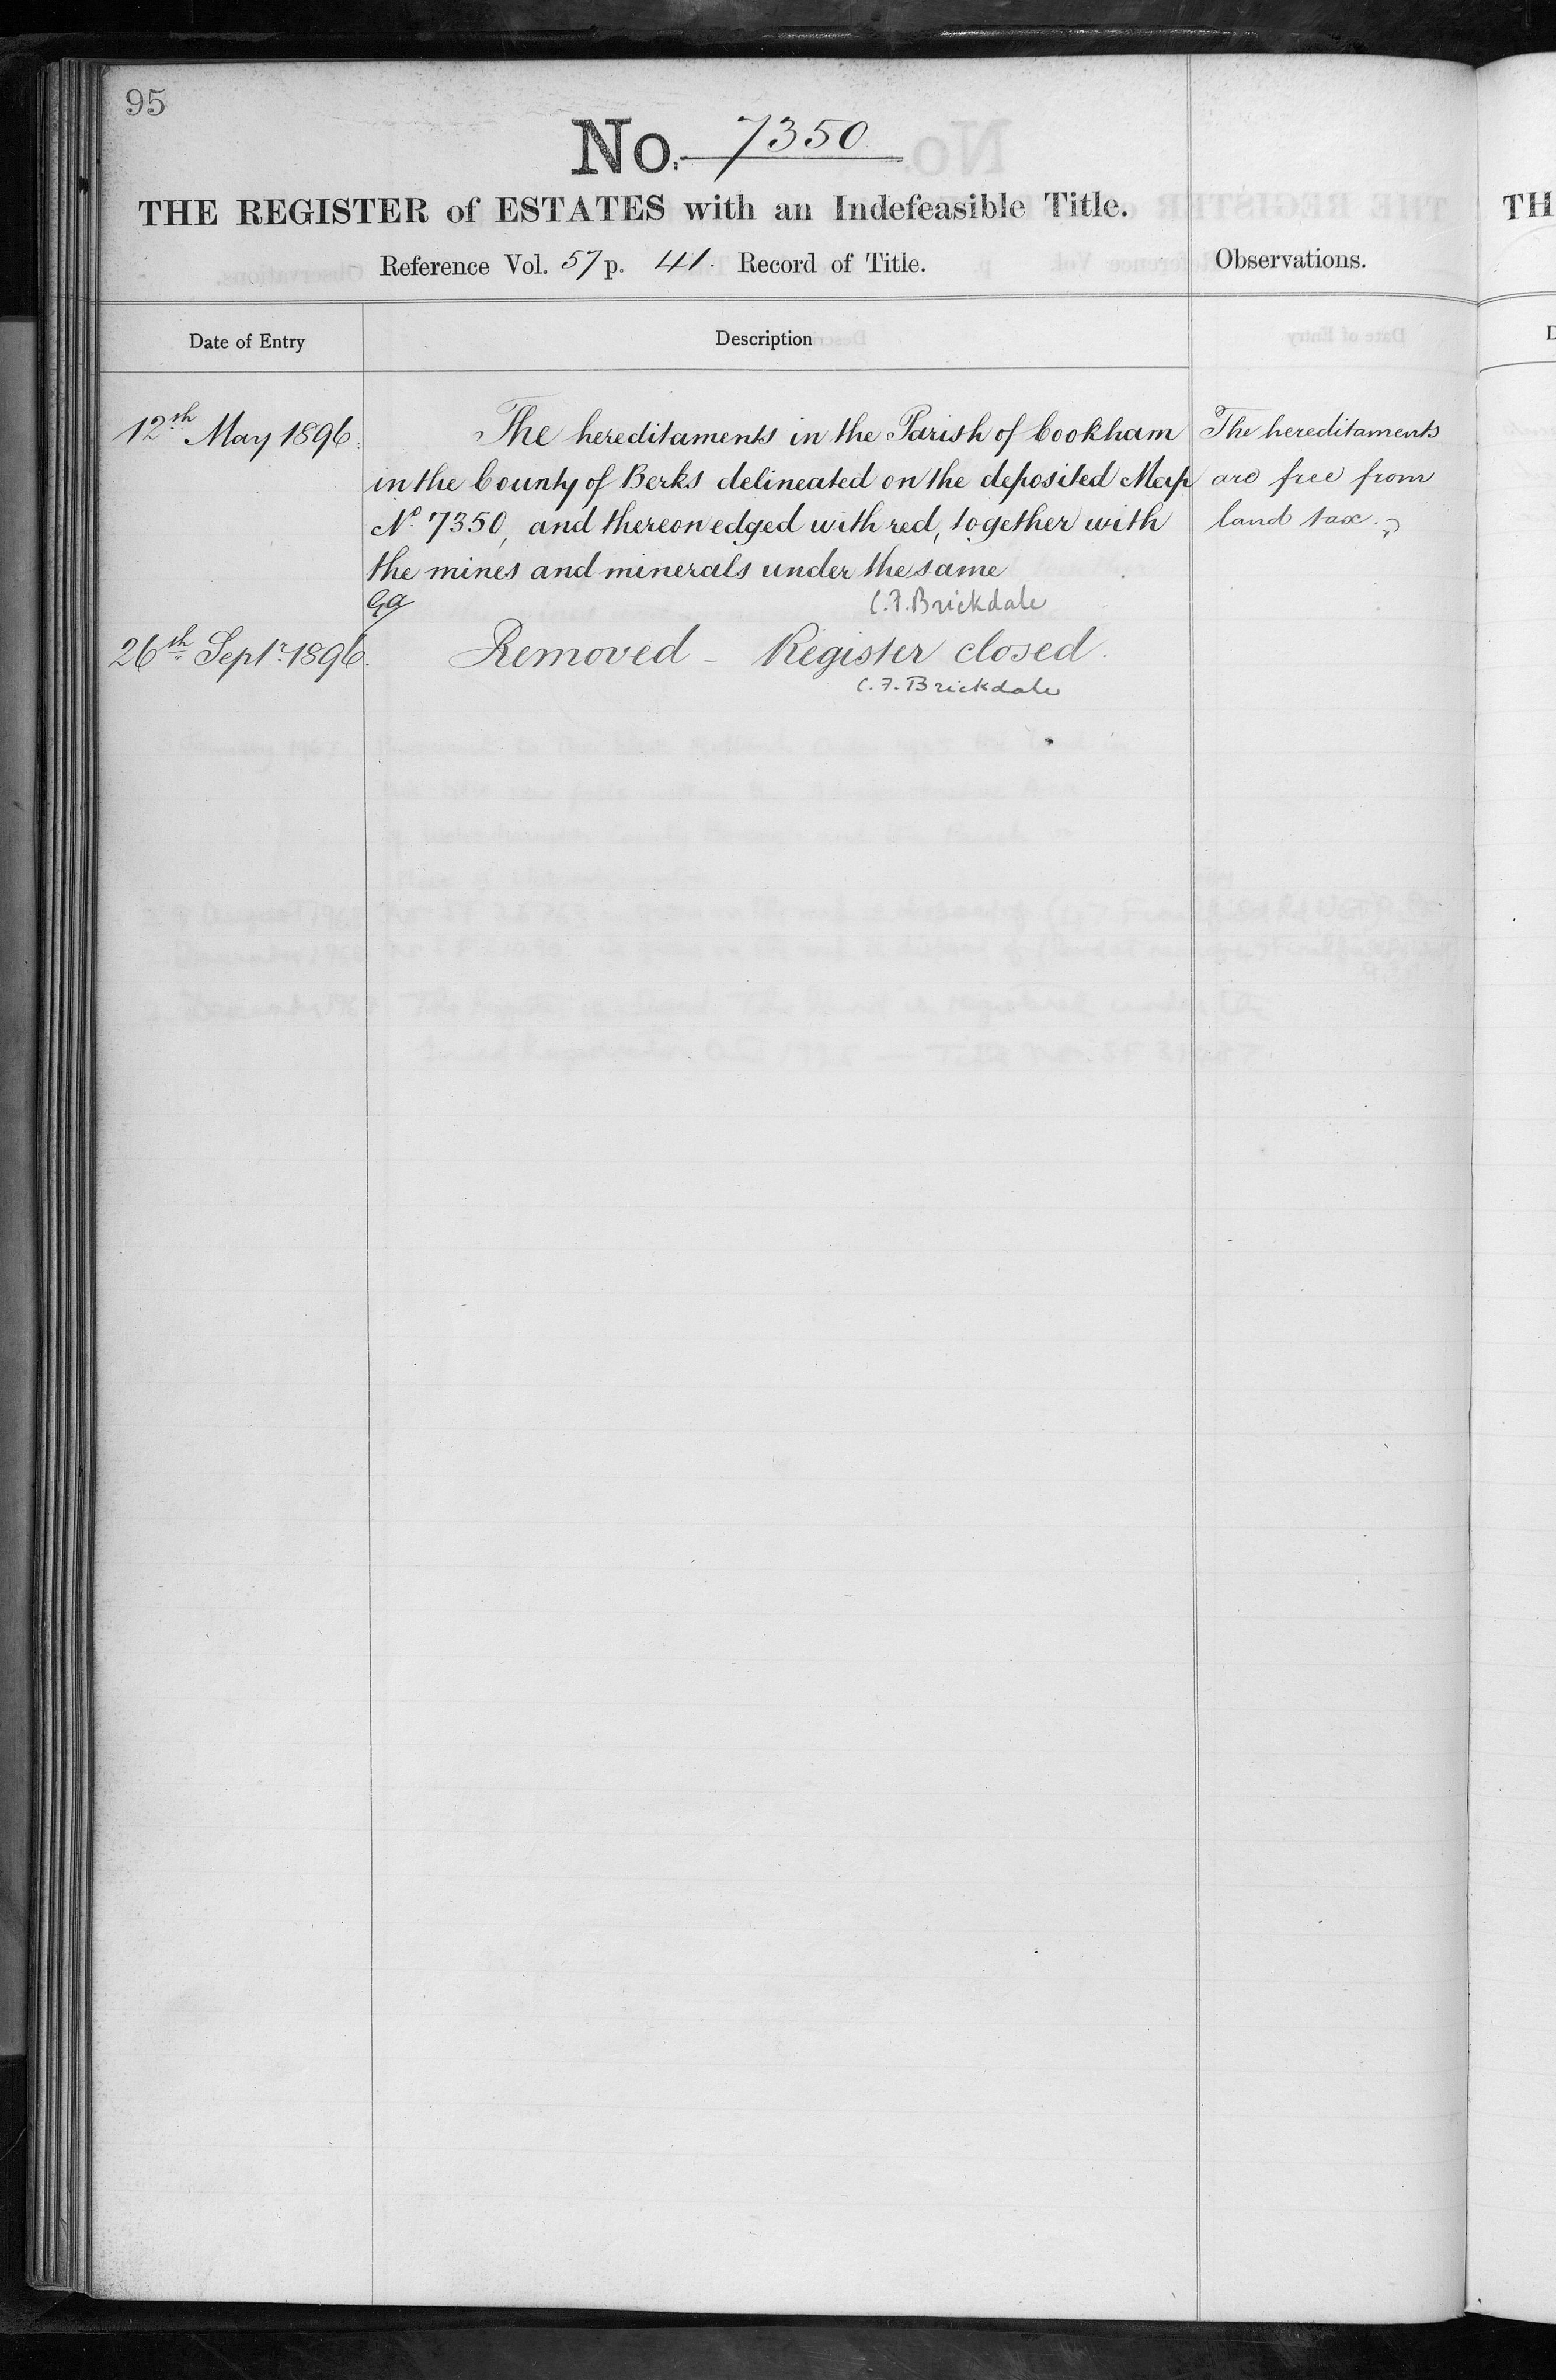 95
No. 7350
THE REGISTER of ESTATES with an Indefeasible Title.
Reference Vol. 57 p. 41. Record of Title.
Observations.
Date of Entry
Description
12th May 1896.
The hereditaments in the Parish of Cookham
in the County of Berks delineated on the deposited Map
No. 7350, and thereon edged with red, together with
the mines and minerals under the same
C.F. Brickdale
The hereditaments
are free from
land tax.
26th Septr. 1896.
Removed – Register closed.
C.F. Brickdale
TH